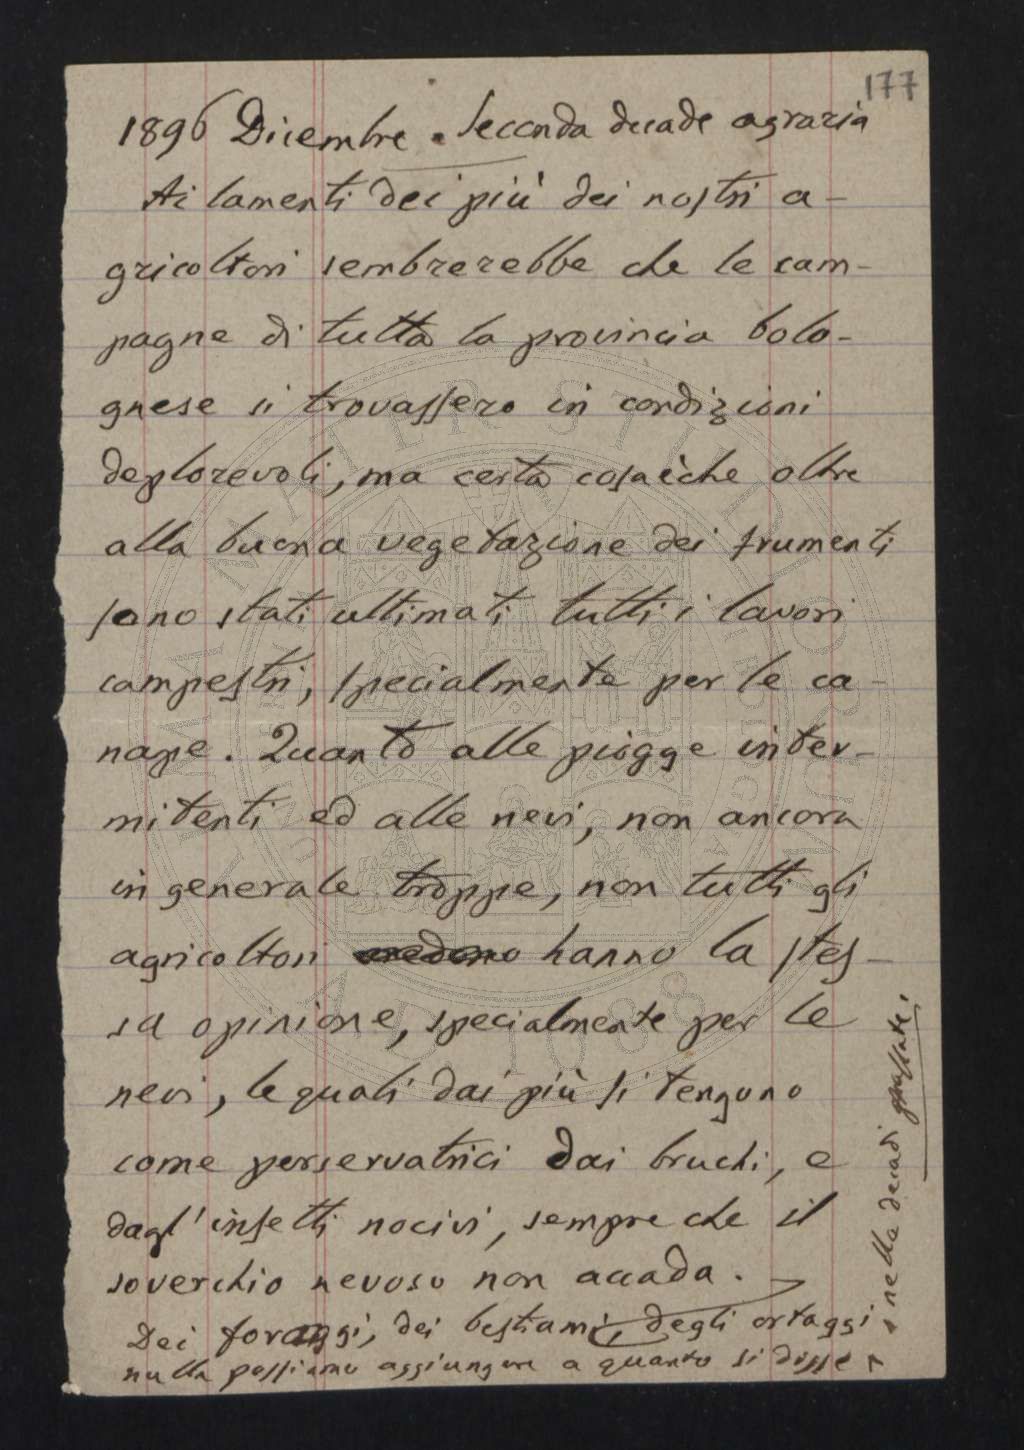 177
1896 Dicembre. Seconda decade agraria
Ai lamenti dei più dei nostri a-
gricoltori sembrerebbe che le cam-
pagne di tutta la provincia bolo-
gnese si trovassero in condizioni
deplorevoli, ma certa cosa è che oltre
alla buona vegetazione dei frumenti
sono stati ultimati tutti i lavori
campestri, specialmente per le ca-
nape. Quanto alle piogge inter-
mitenti ed alle nevi, non ancora
in generale troppe, non tutti gli
agricoltori hanno la stes-
sa opinione, specialmente per le
nevi, le quali dai più si tengono
come perservatrici dai bruchi, e
dagl'insetti nocivi, sempre che il
soverchio nevoso non accada.
Dei foraggi, dei bestiami, degli ortaggi
nulla possiamo aggiungere a quanto si disse
nella decadi passate.
ALMA MATER STUDIORUM
A.D. 1088